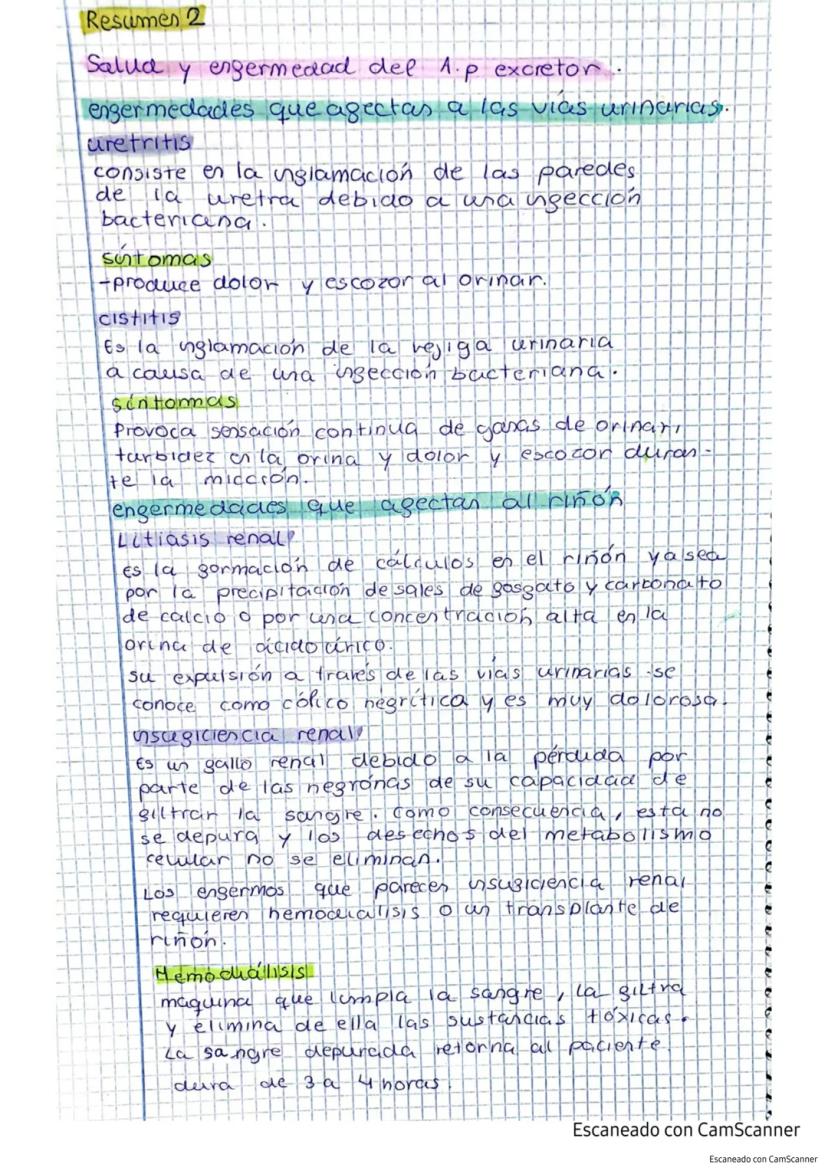 Resumen 2
Salud y enfermedad del A.p excretor.
enfermedades que afectan a las vías urinarias.
uretritis
consiste en la inflamación de las paredes
de la uretra debido a una infección
bacteriana.
síntomas
-produce dolor y escozor al orinar.
cistitis
Es la inflamación de la vejiga urinaria
a causa de una infección bacteriana.
síntomas
Provoca sensación continua de ganas de orinar,
turbidez en la orina y dolor y escozor duran-
te la micción.
enfermedades que afectan al riñón
Litiasis renal
Es la formación de cálculos en el riñón ya sea
por la precipitación de sales de fosfato y carbonato
de calcio o por una concentración alta en la
orina de ácido úrico.
su expulsión a través de las vías urinarias se
conoce como cólico nefrítica y es muy dolorosa.
insuficiencia renal
Es un fallo renal debido a la pérdida por
parte de las nefronas de su capacidad de
filtrar la sangre. Como consecuencia, esta no
se depura y los desechos del metabolismo
celular no se eliminan.
Los enfermos que parecen insuficiencia renal
requieren hemodialisis o un transplante de
riñón.
Hemodiálisis
maquina que limpia la sangre, la filtra
y elimina de ella las sustancias tóxicas.
La sangre depurada retorna al paciente
dura de 3 a 4 horas.
Escaneado con CamScanner
Escaneado con CamScanner